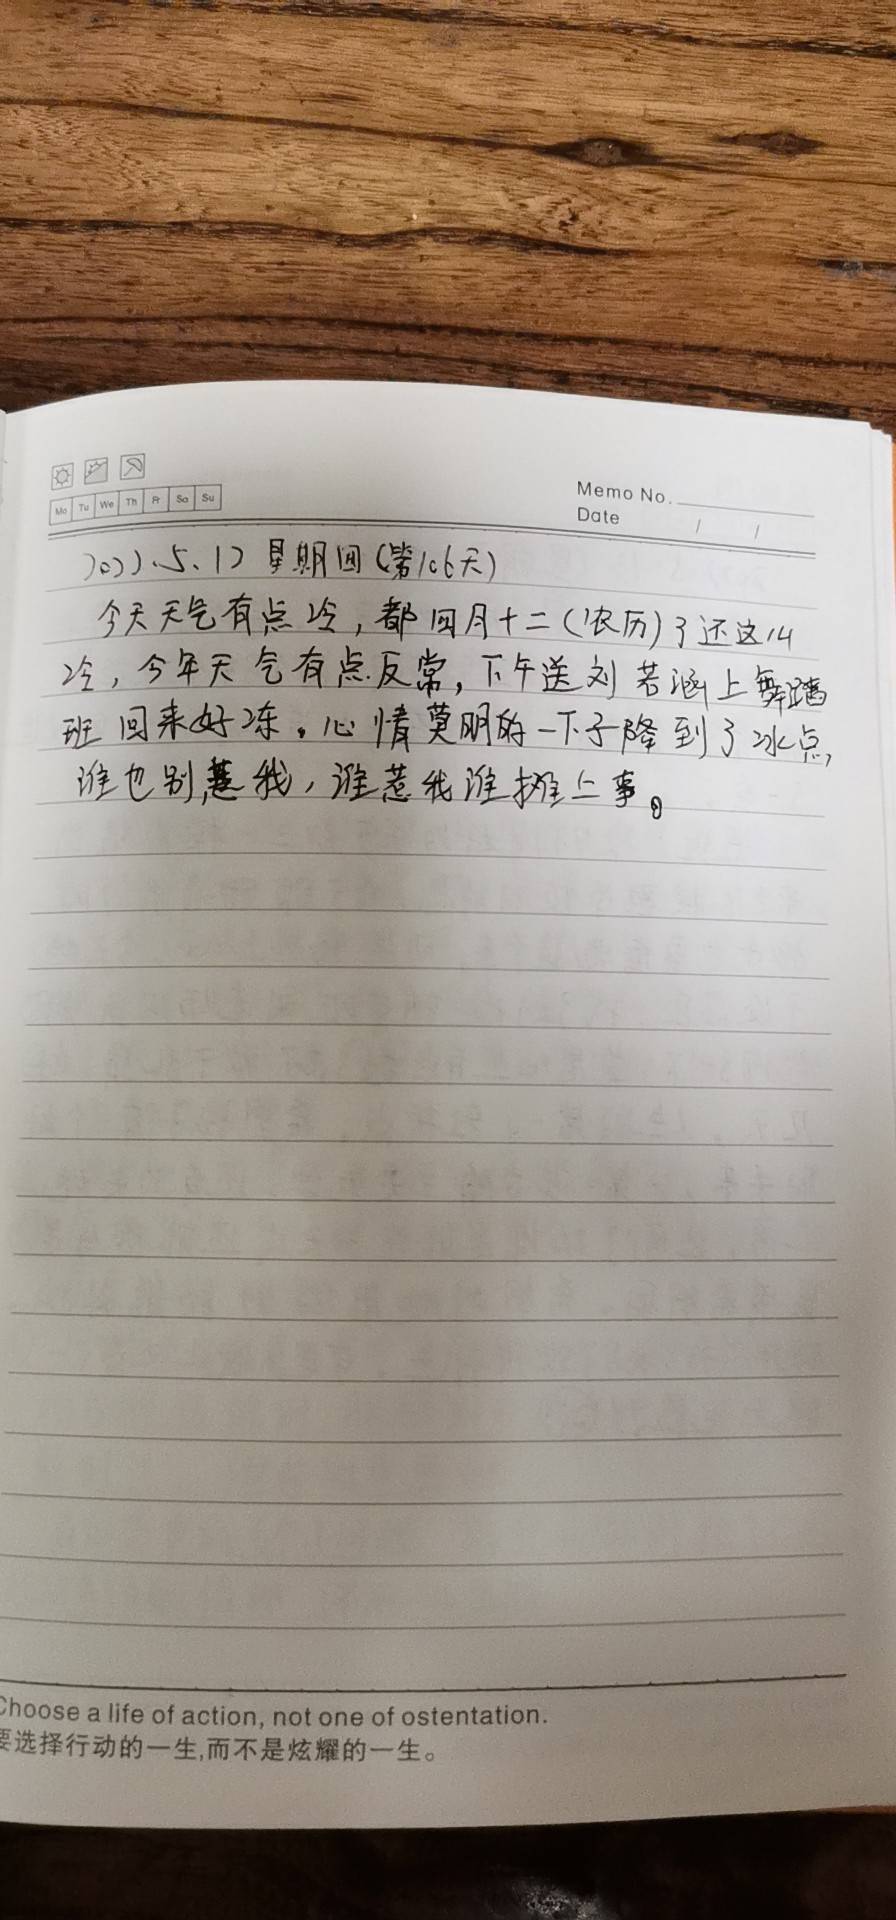 Mo Tu We Th Fr Sa Su
Memo No.
Date / /
2022.5.12 星期四(第106天)
今天天气有点冷,都四月十二(农历)了还这么
冷,今年天气有点反常,下午送刘若涵上舞蹈
班回来好冻。心情莫明的一下子降到了冰点,
谁也别惹我,谁惹我谁摊上事。
Choose a life of action, not one of ostentation.
要选择行动的一生,而不是炫耀的一生。